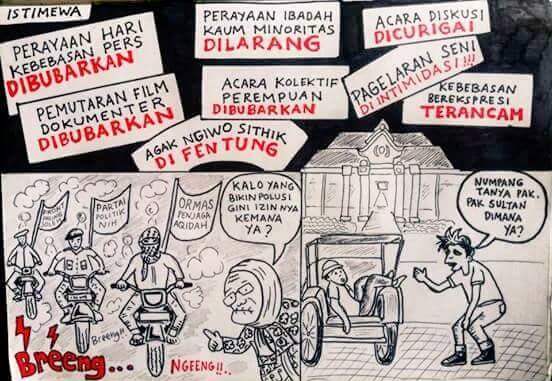 ISTIMEWA
PERAYAAN HARI
KEBEBASAN PERS
DIBUBARKAN
PERAYAAN IBADAH
KAUM MINORITAS
DILARANG
ACARA DISKUSI
DICURIGAI
PEMUTARAN FILM
DOKUMENTER
DIBUBARKAN
ACARA KOLEKTIF
PEREMPUAN
DIBUBARKAN
PAGELARAN SENI
DI INTIMIDASI!!!
KEBEBASAN
BEREKSPRESI
TERANCAM
AGAK NGIWO SITHIK
DI FENTUNG
PALING
PARTAI
POLITIK
NIH
ORMAS
PENJAGA
AQIDAH
KALO YANG
BIKIN POLUSI
GINI IZIN NYA
KEMANA
YA?
NUMPANG
TANYA PAK,
PAK SULTAN
DIMANA
YA?
Breeng...
Breeng!!
NGEENG!!..